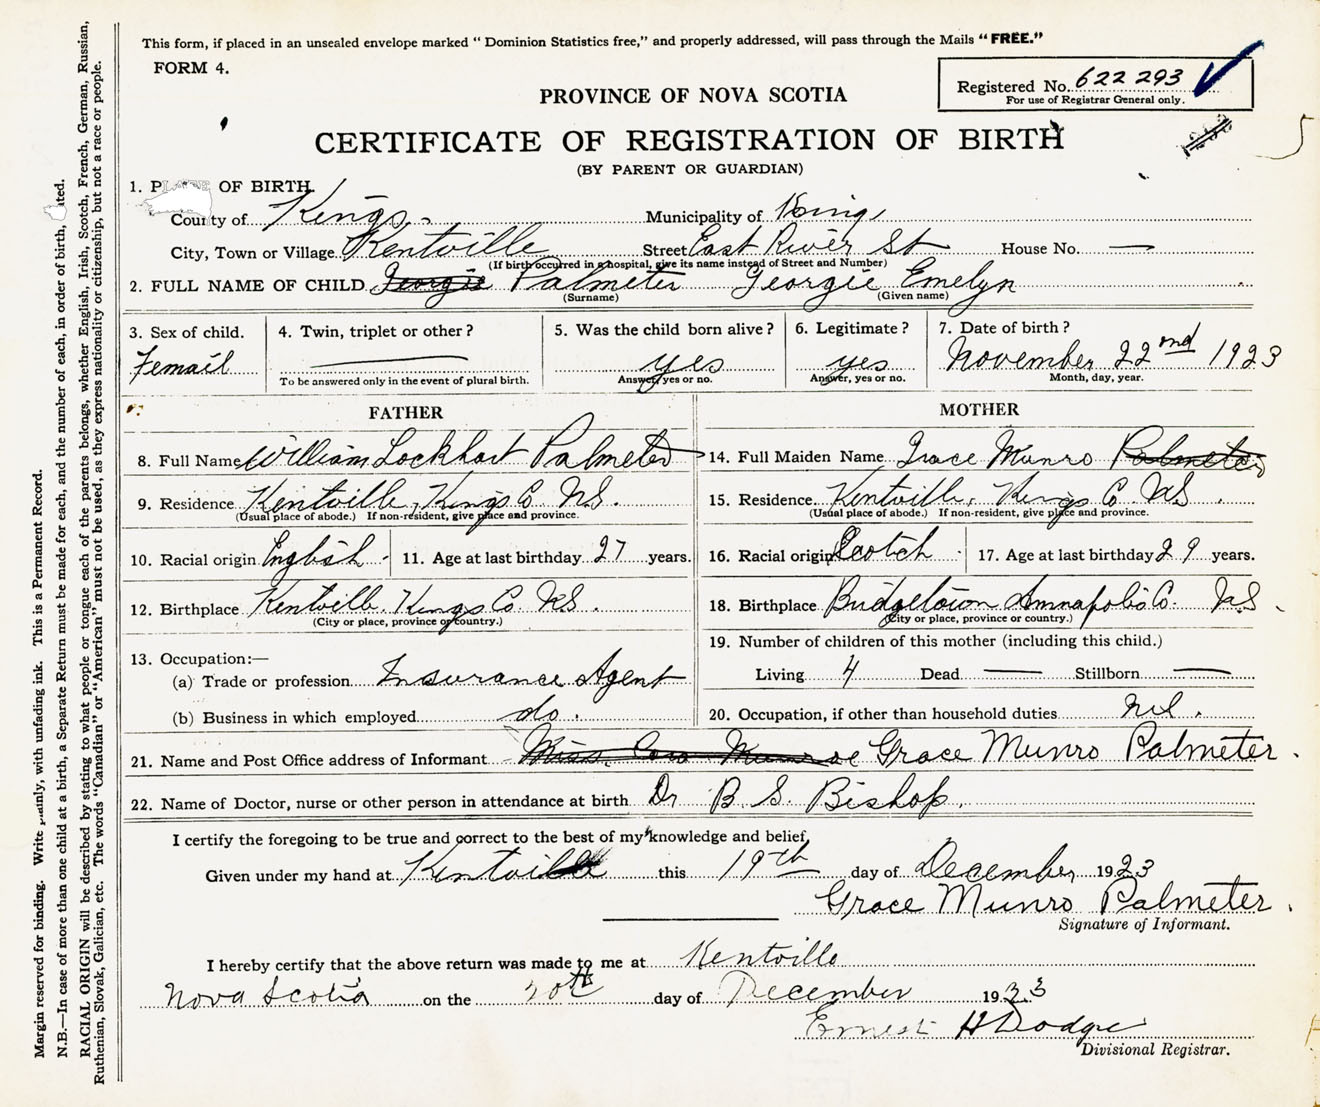 This form, if placed in an unsealed envelope marked “ Dominion Statistics free,” and properly addressed, will pass through the Mails “ FREE.”
FORM 4.
Registered No. 622 293
For use of Registrar General only.
PROVINCE OF NOVA SCOTIA
CERTIFICATE OF REGISTRATION OF BIRTH
(BY PARENT OR GUARDIAN)
1. P OF BIRTH.
County of Kings. Municipality of King
City, Town or Village Kentville Street East River St House No. —
(If birth occurred in a hospital, give its name instead of Street and Number)
2. FULL NAME OF CHILD Georgie Palmeter Georgie Emelyn
(Surname) (Given name)
3. Sex of child. 4. Twin, triplet or other? 5. Was the child born alive? 6. Legitimate? 7. Date of birth?
Femail — yes yes November 22nd 1923
To be answered only in the event of plural birth. Answer, yes or no. Answer, yes or no. Month, day, year.
FATHER MOTHER
8. Full Name William Lockhart Palmeter 14. Full Maiden Name Grace Munro Palmeter
9. Residence Kentville, Kings Co N.S. 15. Residence Kentville, Kings Co NS.
(Usual place of abode.) If non-resident, give place and province. (Usual place of abode.) If non-resident, give place and province.
10. Racial origin English 11. Age at last birthday 27 years. 16. Racial origin Scotch 17. Age at last birthday 29 years.
12. Birthplace Kentville. Kings Co. N.S. 18. Birthplace Bridgetown Annapolis Co. N.S.
(City or place, province or country.) (City or place, province or country.)
13. Occupation:— 19. Number of children of this mother (including this child.)
(a) Trade or profession Insurance Agent Living 4 Dead — Stillborn —
(b) Business in which employed do. 20. Occupation, if other than household duties nil.
21. Name and Post Office address of Informant Miss Munroe Grace Munro Palmeter.
22. Name of Doctor, nurse or other person in attendance at birth Dr B. S. Bishop.
I certify the foregoing to be true and correct to the best of my knowledge and belief,
Given under my hand at Kentville this 19th day of December 1923
Grace Munro Palmeter.
Signature of Informant.
I hereby certify that the above return was made to me at Kentville
Nova Scotia on the 20th day of December 1923
Ernest H Dodge
Divisional Registrar.
Margin reserved for binding. Write, with unfading ink. This is a Permanent Record.
N.B.—In case of more than one child at a birth, a Separate Return must be made for each, and the number of each, in order of birth, ted.
RACIAL ORIGIN will be described by stating to what people or tongue each of the parents belongs, whether English, Irish, Scotch, French, German, Russian,
Ruthenian, Slovak, Galician, etc. The words “Canadian” or “American” must not be used, as they express nationality or citizenship, but not a race or people.